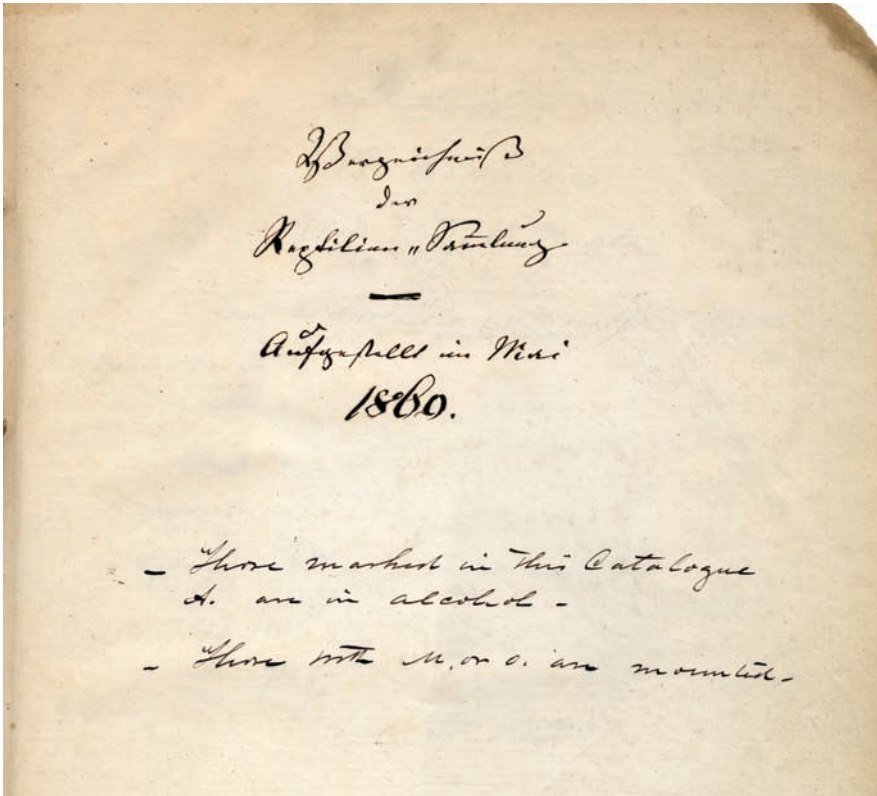 Verzeichniß
der
Reptilien„Sam̅lung
Aufgestellt im Mai
1860.
- Those marked in this Catalogue
A. are in alcohol -
- Those with M. or o. are mounted -